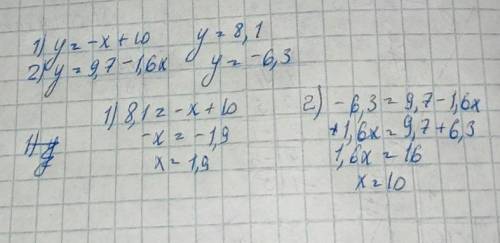 1) y = -x + 10 y = 8,1
2) y = 9,7 - 1,6x y = -6,3
1) 8,1 = -x + 10
-x = -1,9
x = 1,9
2) -6,3 = 9,7 - 1,6x
+1,6x = 9,7 + 6,3
1,6x = 16
x = 10